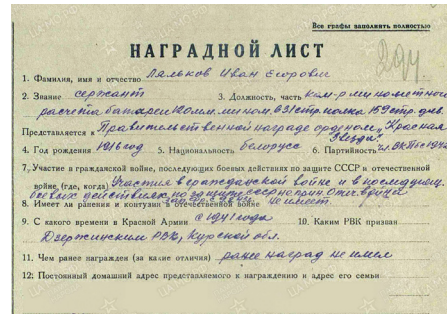 Все графы заполнять полностью
294
НАГРАДНОЙ ЛИСТ
1. Фамилия, имя и отчество Ляльков Иван Егорович
2. Звание сержант 3. Должность, часть ком-р минометной
расчета батареи 120 мм. мином. 631 стр. полка 159 стр. див.
Представляется к Правительственной награде орденом, Красная
Звезда
4. Год рождения 1916 год 5. Национальность белорусс 6. Партийность
7. Участие в гражданской войне, последующих боевых действиях по защите СССР и отечественной
войне, (где, когда) Участия в гражданской войне и в последующ.
боевых действиях по защите ссср не
8. Имеет ли ранения и контузии в отечественной войне не имеет
9. С какого времени в Красной Армии с 1941 года 10. Каким РВК призван
Дзержинским РВК, Курской обл.
11. Чем ранее награжден (за какие отличия) ранее наград не имел
12: Постоянный домашний адрес представляемого к награждению и адрес его семьи